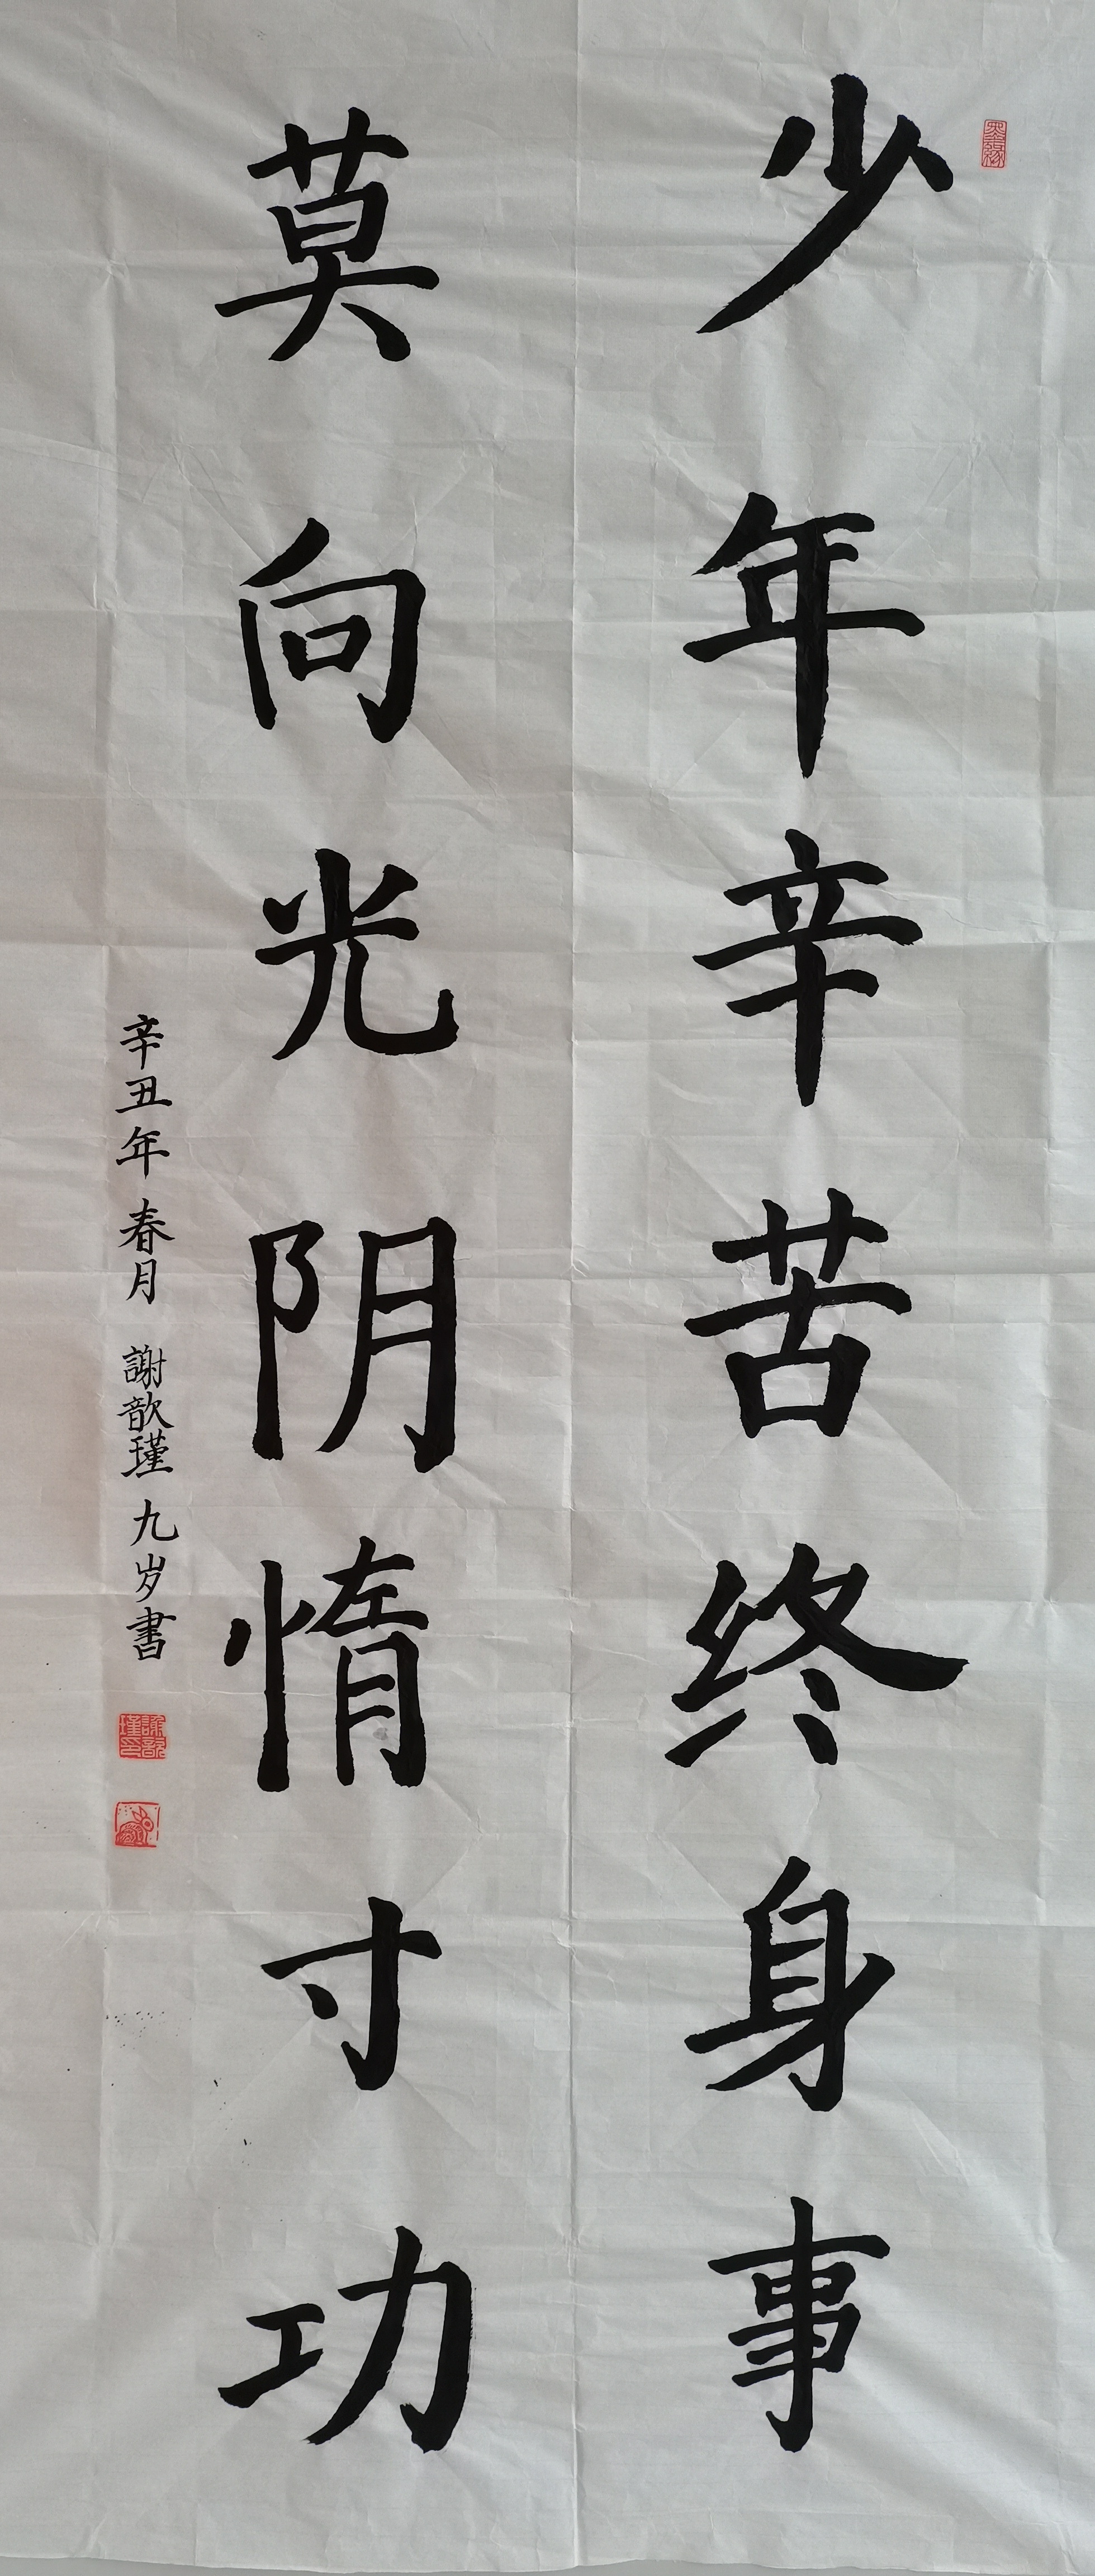 少年辛苦终身事
莫向光阴惰寸功
辛丑年春月 謝歆瑾 九岁書